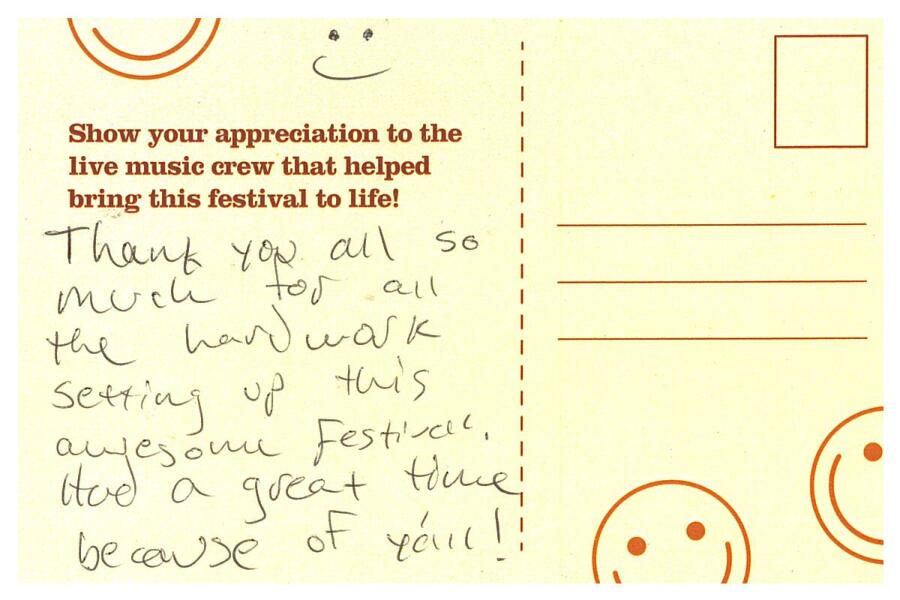 Show your appreciation to the
live music crew that helped
bring this festival to life!
Thank you all so
much for all
the hard work
setting up this
awesome festival.
Had a great time
because of y'all!